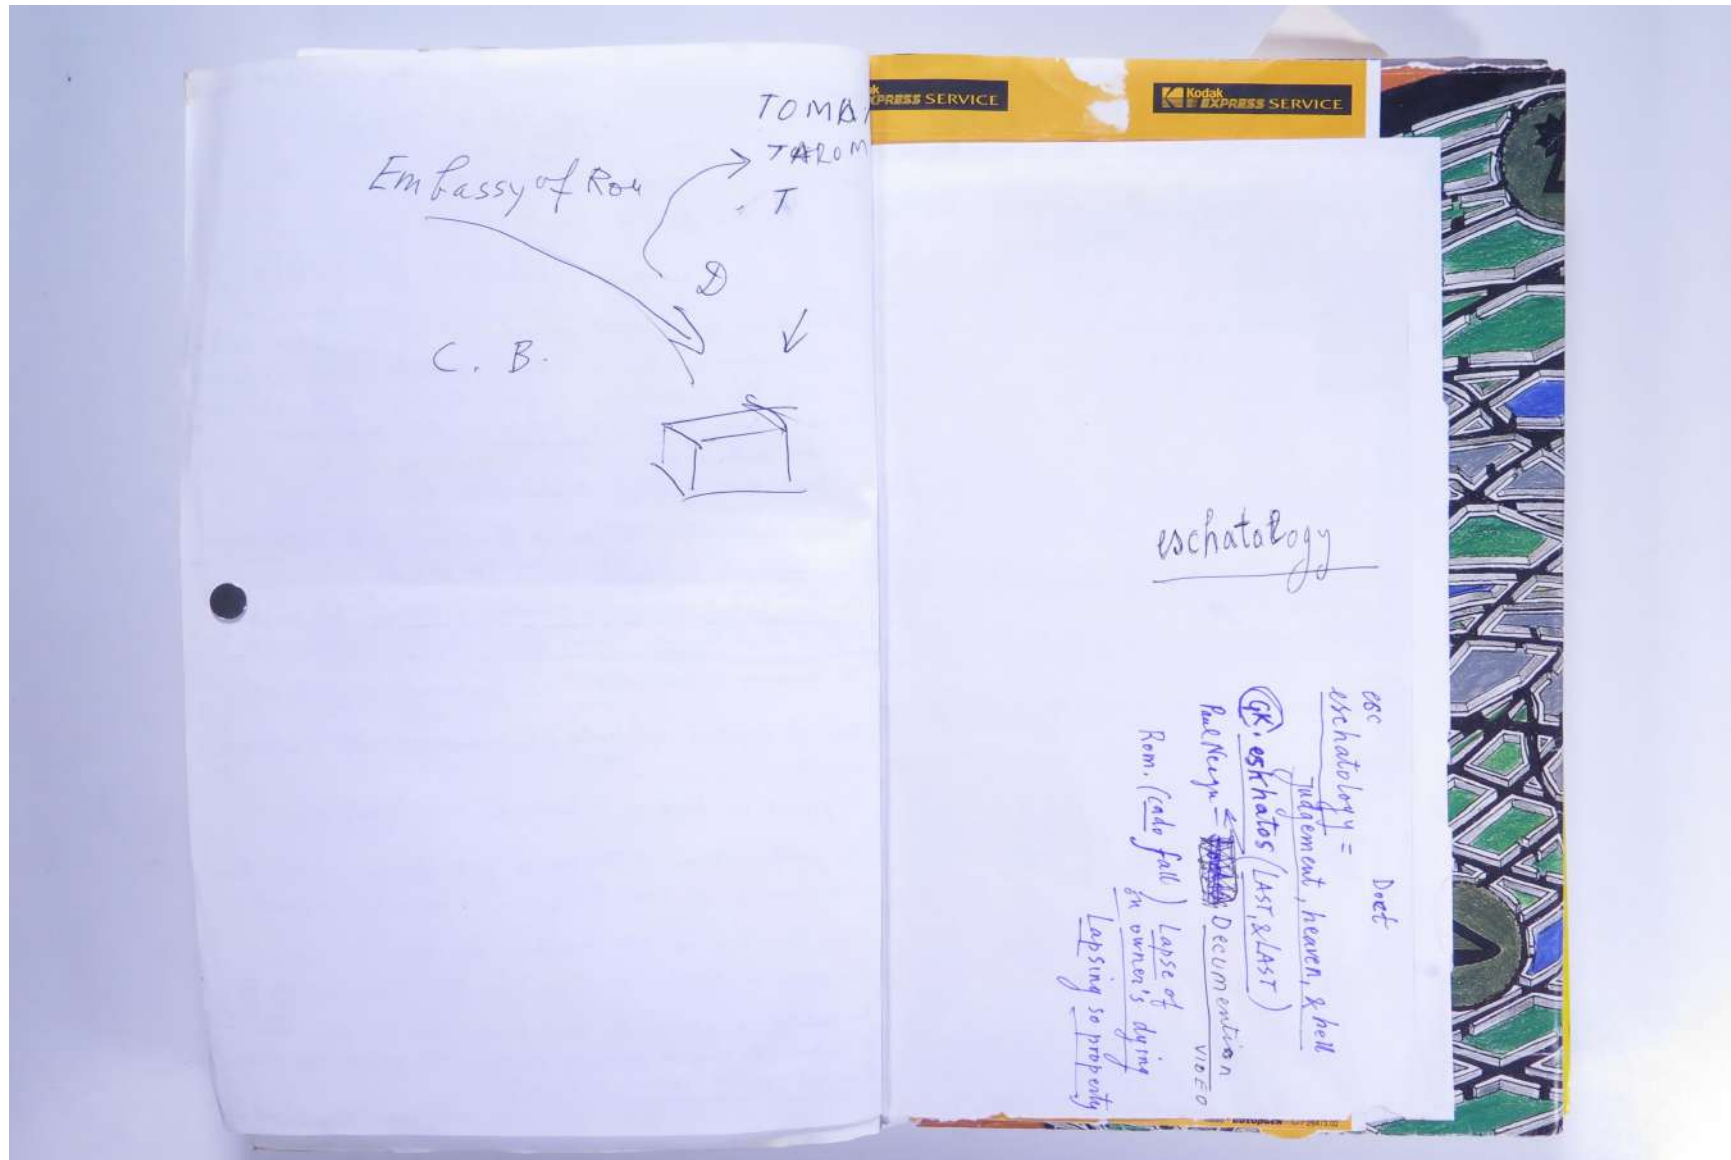 TOMB
TAROM
T
Embassy of Rou
D
C. B.
EXPRESS SERVICE
Kodak
EXPRESS SERVICE
eschatology
Doct
esc
eschatology =
Judgement, heaven, & hell
GK. eskhatos (LAST, & LAST)
Paul Neagu = Documention
VIDEO
Rom. (cado fall) Lapse of
on owner's dying
Lapsing so property